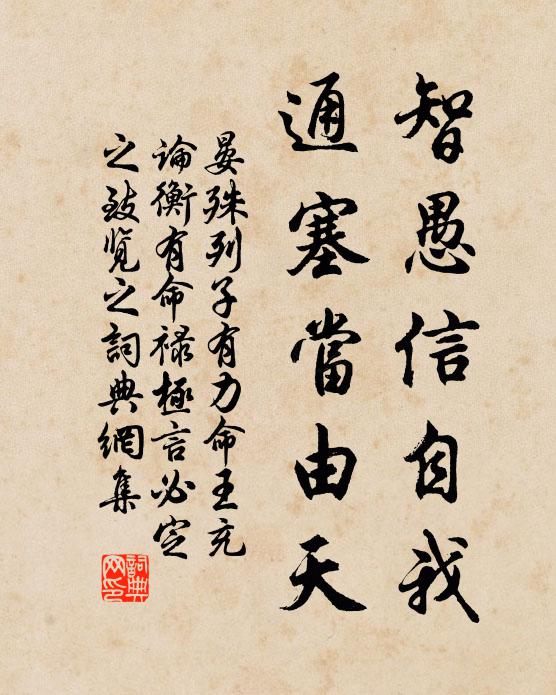 智愚信自我
通塞當由天
晏殊列子有力命王充
論衡有命祿極言必定
之致覽之詞典網集
詞典
网印